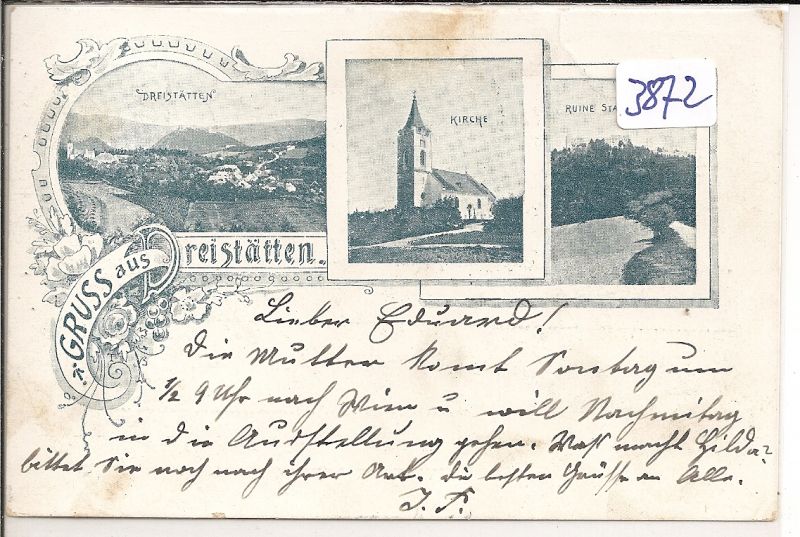 DREISTÄTTEN
KIRCHE
RUINE STA
3872
GRUSS aus Dreistätten.
Lieber Eduard!
Die Mutter komt Sontag um
1/2 9 Uhr nach Wien u will Nachmitag
in die Ausstellung gehen. Was macht Hilda?
bittet Sie noch nach ihrer Art. die besten Grüsse an Alle.
J. F.